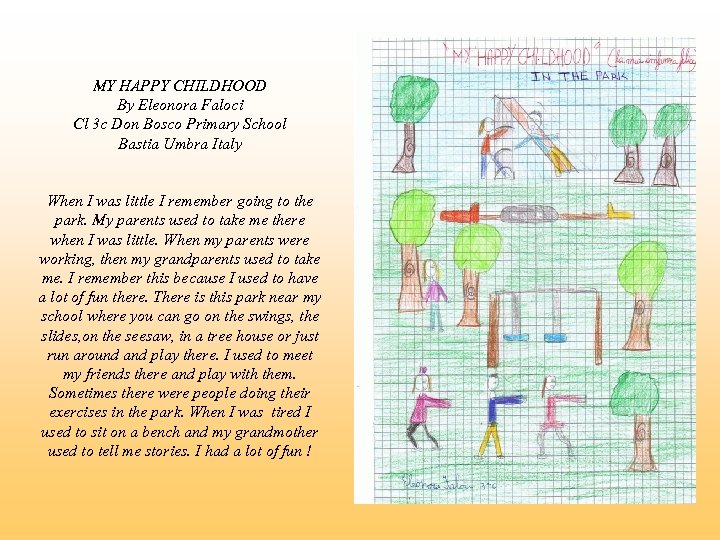 MY HAPPY CHILDHOOD
By Eleonora Faloci
Cl 3c Don Bosco Primary School
Bastia Umbra Italy
When I was little I remember going to the
park. My parents used to take me there
when I was little. When my parents were
working, then my grandparents used to take
me. I remember this because I used to have
a lot of fun there. There is this park near my
school where you can go on the swings, the
slides, on the seesaw, in a tree house or just
run around and play there. I used to meet
my friends there and play with them.
Sometimes there were people doing their
exercises in the park. When I was tired I
used to sit on a bench and my grandmother
used to tell me stories. I had a lot of fun !
"MY HAPPY CHILDHOOD"
IN THE PARK
Eleonora Faloci